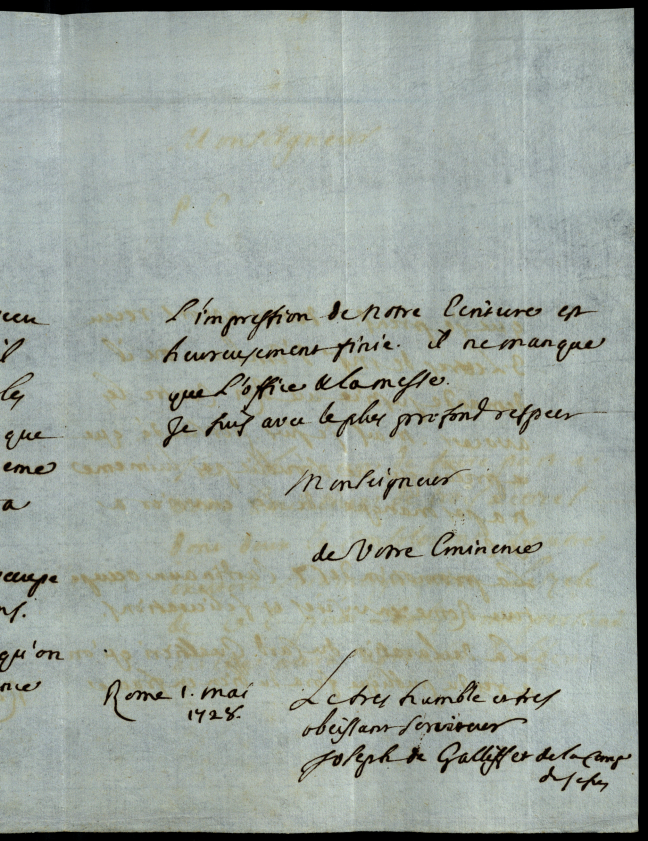 L'impression de notre Ecriture est
heureusement finie. il ne manque
que L'office & la messe.
Je suis avec le plus profond respect
Monseigneur
de Votre Eminence
Rome 1. mai
1728.
Le tres humble et tres
obeissant serviteur
Joseph de Galliffet de la Comp
de Jesus
il
les
que
eme
a
qu'on